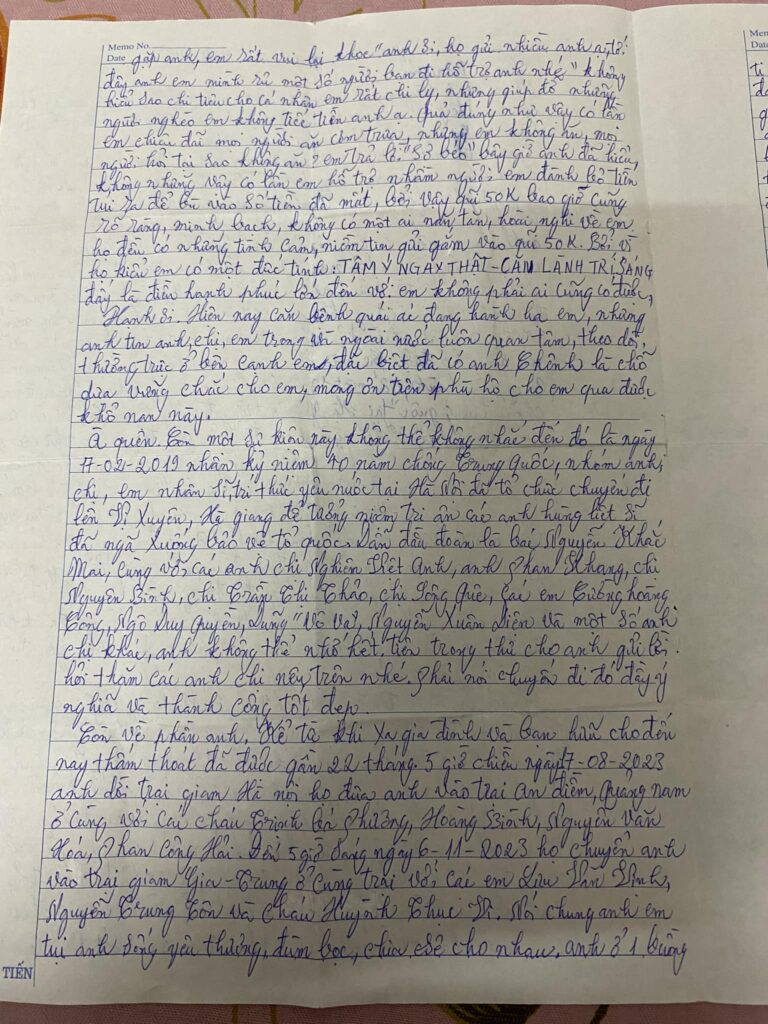 Memo No.
Date gặp anh, em rất vui lại khoe "anh ơi, họ gửi nhiều anh ạ, tới
đây anh em mình rủ một số người bạn đi hỗ trợ anh nhé" không
hiểu sao chi tiêu cho cá nhân em rất chi ly, nhưng giúp đỡ những
người nghèo em không tiếc tiền anh ạ. Quả đúng như vậy có lần
em chiêu đãi mọi người ăn cơm trưa, nhưng em không ăn, mọi
người hỏi tại sao không ăn? em trả lời "Sợ béo" bây giờ anh đã hiểu,
không những vậy có lần em hỗ trợ nhầm người em đành bỏ tiền
túi ra để bù vào số tiền đã mất, bởi vậy quĩ 50K bao giờ cũng
rõ ràng, minh bạch, không có một ai nán, hoài nghi về em
họ đều có những tình cảm, niềm tin gửi gắm vào quĩ 50K. Bởi vì
họ hiểu em có một đức tính: TÂM Ý NGAY THẬT - CĂN LÀNH TRÍ SÁNG
đấy là điều hạnh phúc lớn đến với em không phải ai cũng có được,
Hạnh ơi. Hiện nay căn bệnh quái ai đang hành hạ em, nhưng
anh tin anh, chị, em trong và ngoài nước luôn quan tâm, theo dõi,
thường trực ở bên cạnh em, đặc biệt đã có anh Chênh là chỗ
dựa vững chắc cho em, mong ơn trên phù hộ cho em qua được
khổ nạn này.
À quên. Còn một sự kiện này không thể không nhắc đến đó là ngày
17-02-2019 nhân kỷ niệm 40 năm chống Trung Quốc, nhóm anh,
chị, em nhân sĩ, trí thức yêu nước tại Hà Nội đã tổ chức chuyến đi
lên Vị Xuyên, Hà giang để tưởng niệm tri ân các anh hùng liệt sĩ
đã ngã xuống bảo vệ tổ quốc. Dẫn đầu đoàn là bác Nguyễn Khắc
Mai, cùng với các anh chị Nghiêm Việt Anh, anh Phan Khang, chị
Nguyên Bình, chị Trần Thị Thảo, chị Sông Quê, các em Cường hoàng
Công, Ngô Duy Quyền, Dũng "Vô Va", Nguyễn Xuân Diện và một số anh
chị khác, anh không thể nhớ hết tên trong thư cho anh gửi lời
hỏi thăm các anh chị nêu trên nhé. Phải nói chuyến đi đó đầy ý
nghĩa và thành công tốt đẹp.
Còn về phần anh, kể từ khi xa gia đình và bạn hữu cho đến
nay thấm thoát đã được gần 22 tháng. 5 giờ chiều ngày 17-08-2023
anh dời trại giam Hà nội họ đưa anh vào trại An điềm, Quảng nam
ở cùng với các cháu Trịnh Bá Phương, Hoàng Bình, Nguyễn Văn
Hoá, Phan Công Hải. Đến 5 giờ sáng ngày 6-11-2023 họ chuyển anh
vào trại giam Gia-Trung ở cùng trại với các em Lưu Văn Vịnh,
Nguyễn Trung Tôn và cháu Huỳnh Thục Vi. Nói chung anh em
tụi anh sống yêu thương, đùm bọc, chia sẻ cho nhau. anh ở 1 buồng
TIẾN